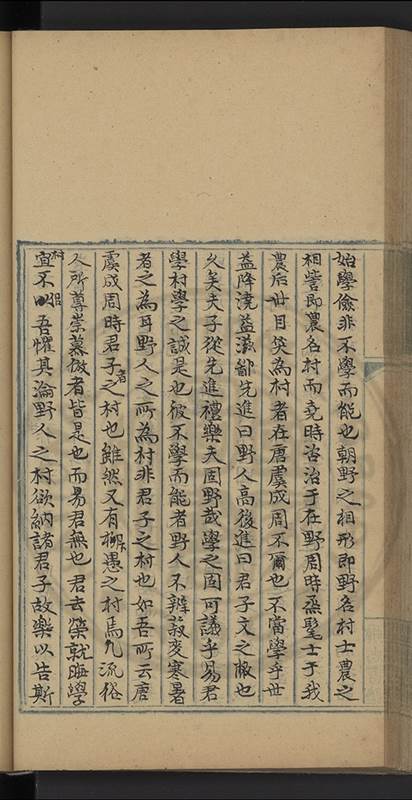 始學儉非不學而能也朝野之相形即野名村士農之
相訾即農名村而堯時咨治于在野周時烝髦士于我
農后世目笑為村者在唐虞成周不爾也不當學乎世
益降澆益滋鄙先進曰野人高後進曰君子文之敝也
久矣夫子從先進禮樂夫固野哉學之固可議乎易君
學村學之誠是也彼不學而能者野人不辨菽麥寒暑
者之為耳野人之所為村非君子之村也如吾所云唐
虞成周時君子者之村也雖然又有椰愚之村焉凡流俗
人所尊崇慕倣者皆是也而易君無也君去榮就晦學
村宜不明吾懼其淪野人之村欲納諸君子故樂以告斯